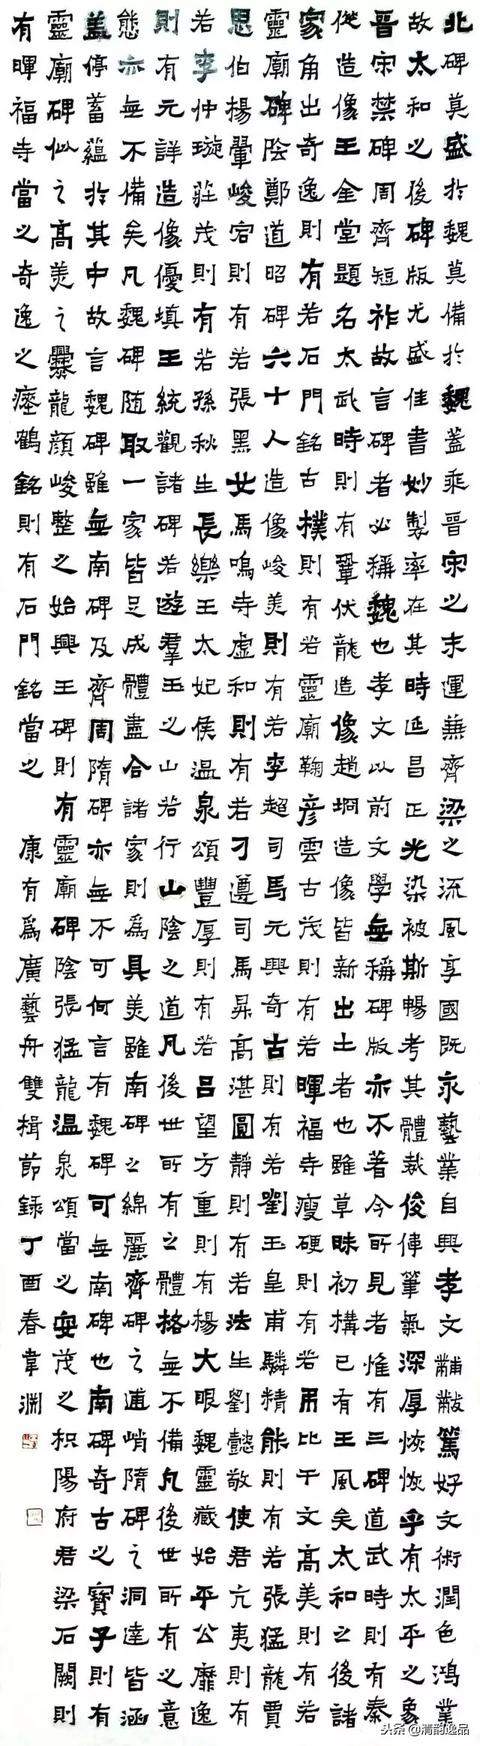 北碑莫盛於魏莫備於魏蓋乘晉宋之末運兼齊梁之流風享國既永藝業自興孝文黼黻篤好文術潤色鴻業
故太和之後碑版尤盛佳書妙製率在其時延昌正光染被斯暢考其體裁俊偉筆氣深厚恢恢乎有太平之象
晉宋禁碑周齊短祚故言碑者必稱魏也孝文以前文學無稱碑版亦不著今所見者惟有三碑道武時則有秦
從造像王金堂題名太武時則有鞏伏龍造像趙埛造像皆新出土者也雖草昧初構已有王風矣太和之後諸
家角出奇逸則有若石門銘古樸則有若靈廟鞠彥雲古茂則有若暉福寺瘦硬則有若弔比干文高美則有若
靈廟碑陰鄭道昭碑六十人造像峻美則有若李超司馬元興奇古則有若劉玉皇甫驎精能則有若張猛龍賈
思伯楊翬峻宕則有若張黑女馬鳴寺虛和則有若刁遵司馬昇高湛圓靜則有若法生劉懿敬使君亢夷則有
若李仲璇莊茂則有若孫秋生長樂王太妃侯溫泉頌豐厚則有若呂望方重則有楊大眼魏靈藏始平公靡逸
則有元詳造像優填王統觀諸碑若遊羣玉之山若行山陰之道凡後世所有之體格無不備凡後世所有之意
態亦無不備矣凡魏碑隨取一家皆足成體盡合諸家則爲具美雖南碑之綿麗齊碑之逋峭隋碑之洞達皆涵
蓋停蓄蘊於其中故言魏碑雖無南碑及齊周隋碑亦無不可何言有魏碑可無南碑也南碑奇古之寶子則有
靈廟碑似之高美之爨龍顏峻整之始興王碑則有靈廟碑陰張猛龍溫泉頌當之安茂之枳陽府君梁石闕則
有暉福寺當之奇逸之瘞鶴銘則有石門銘當之
康有爲廣藝舟雙楫節錄丁酉春韋淵
头条@清韵逸品